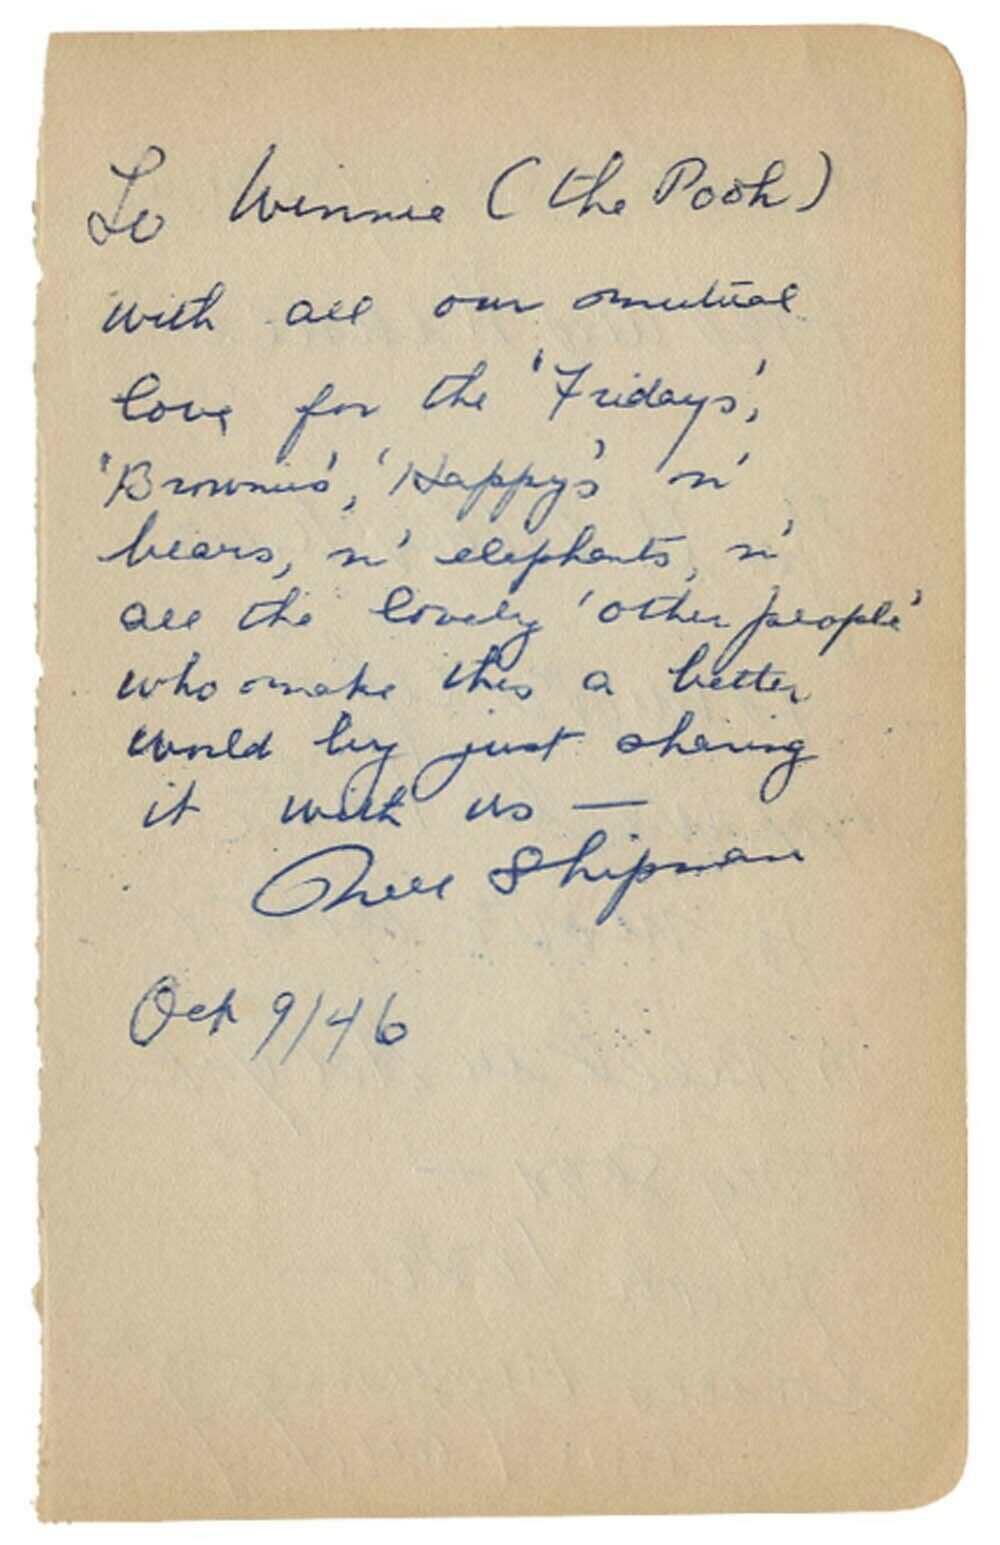 To Winnie (the Pooh)
with all our mutual
love for the 'Fridays',
'Brownie's', 'Happy's' n'
bears, n' elephants, n'
all the lovely 'other people'
who make this a better
world by just sharing
it with us —
Nell Shipman
Oct 9/46